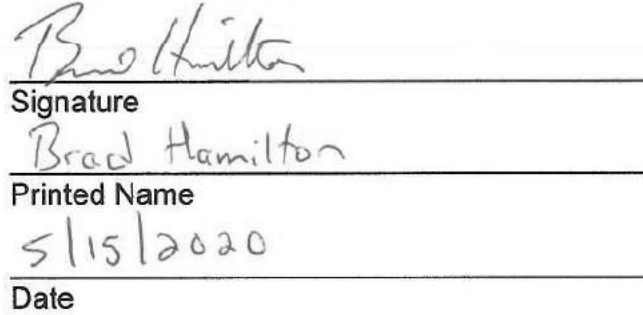 Brad Hamilton
Signature
Brad Hamilton
Printed Name
5/15/2020
Date